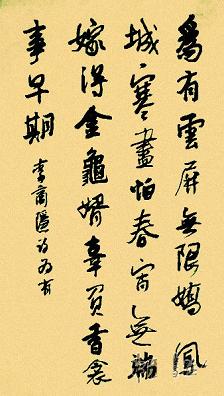 為有雲屏無限嬌鳳
城寒盡怕春宵無端
嫁得金龜婿辜負香衾
事早期
李商隱詩為有